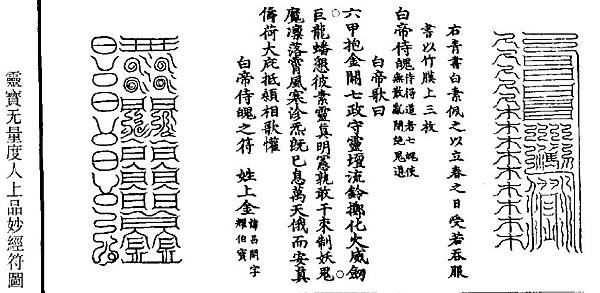 右青書白素佩之以立春之日受若吞服
書以竹膜上三枚
白帝侍魄侍得道者七魄使
無散亂開絕鬼道
白帝歌曰
六甲抱金闕七政守靈壇流鈴擲化火威劒
巨龍蟠彼素靈真明憲孰敢干來制妖鬼
魔凜落霄風寒診炁既已息萬天俄而安真
儔荷大庇抵頌相歌懽
白帝侍魄之符 姓上金諱昌開字
耀伯寶
靈寶无量度人上品妙經符圖